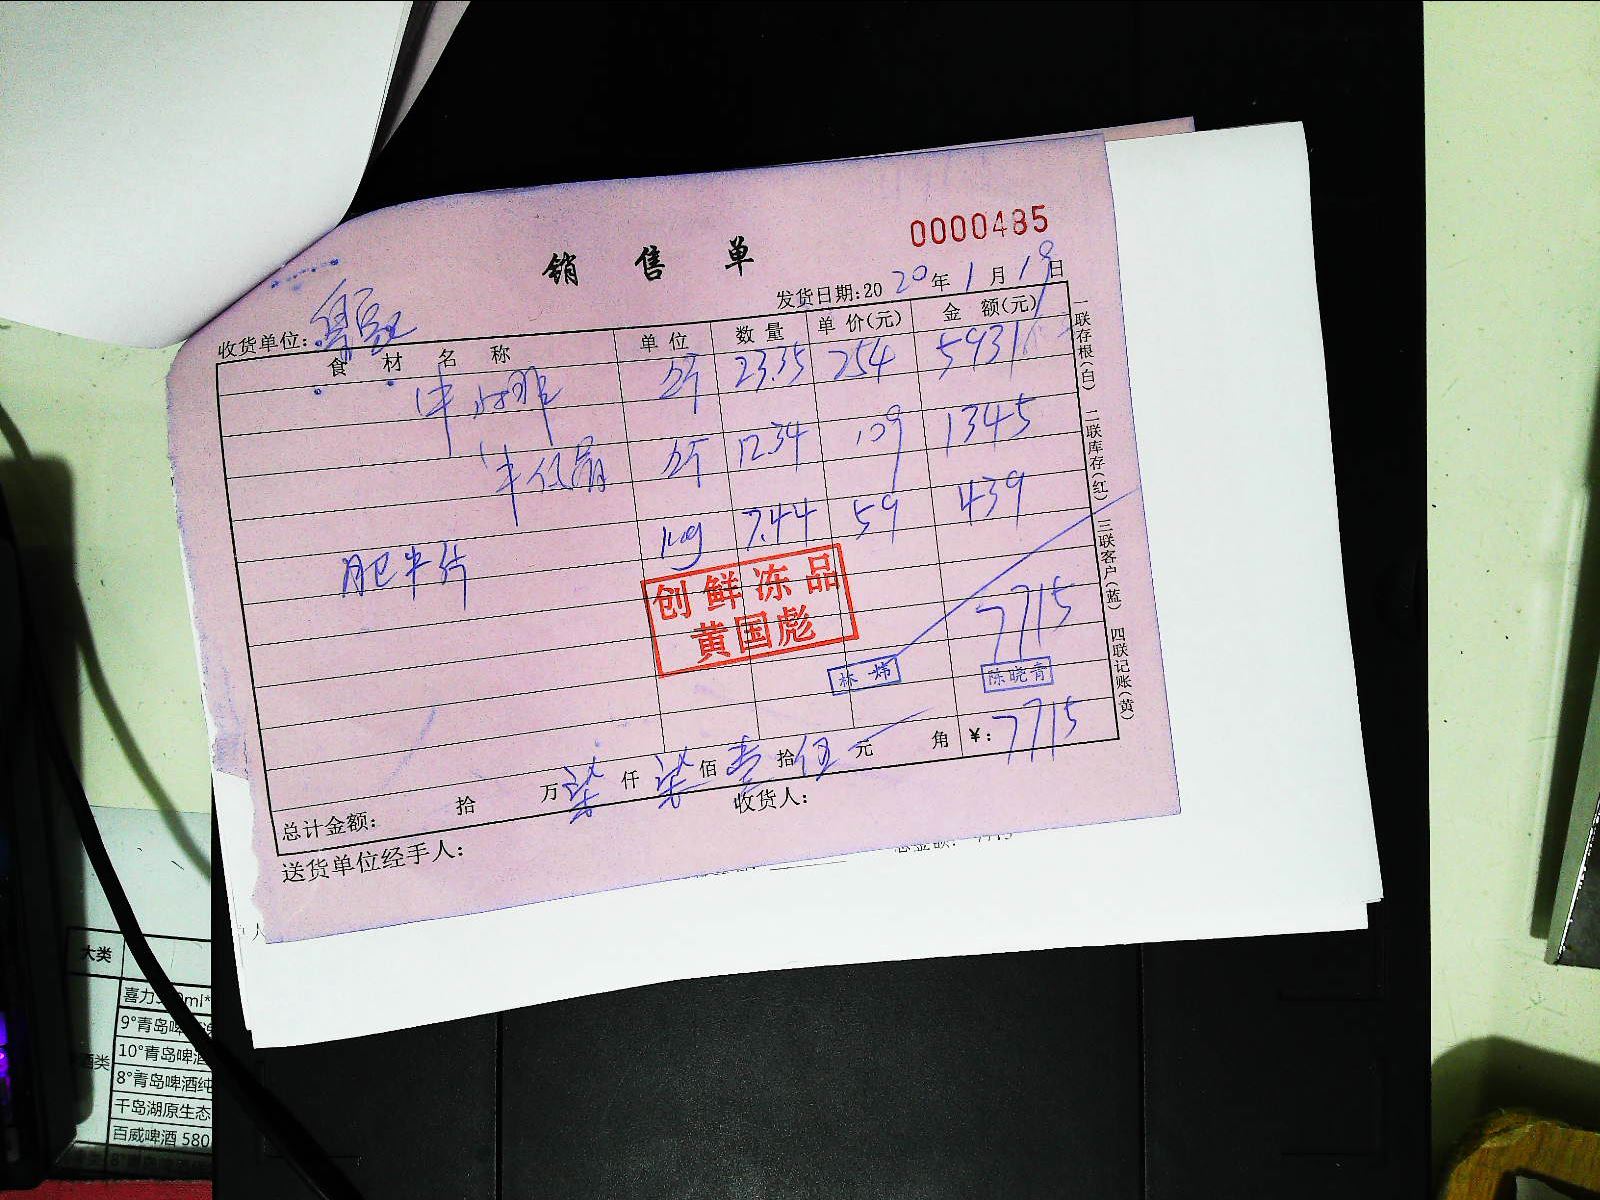 0000485
销售单
发货日期:20 20 年 1 月 19 日
收货单位:
食材名称 单位 数量 单价(元) 金额(元)
牛 斤 23.35 254 5931
牛 斤 12.34 109 1345
肥牛片 kg 7.44 59 439
创鲜冻品
黄国彪
7715
林炜 陈晓青
总计金额: 拾 万 柒 仟 柒 佰 壹 拾 伍 元 角 ¥: 7715
送货单位经手人: 收货人:
一联存根(白) 二联库存(红) 三联客户(蓝) 四联记账(黄)
大类
喜力
9°青岛啤
10°青岛啤酒
酒类
8°青岛啤酒纯
千岛湖原生态
百威啤酒 580